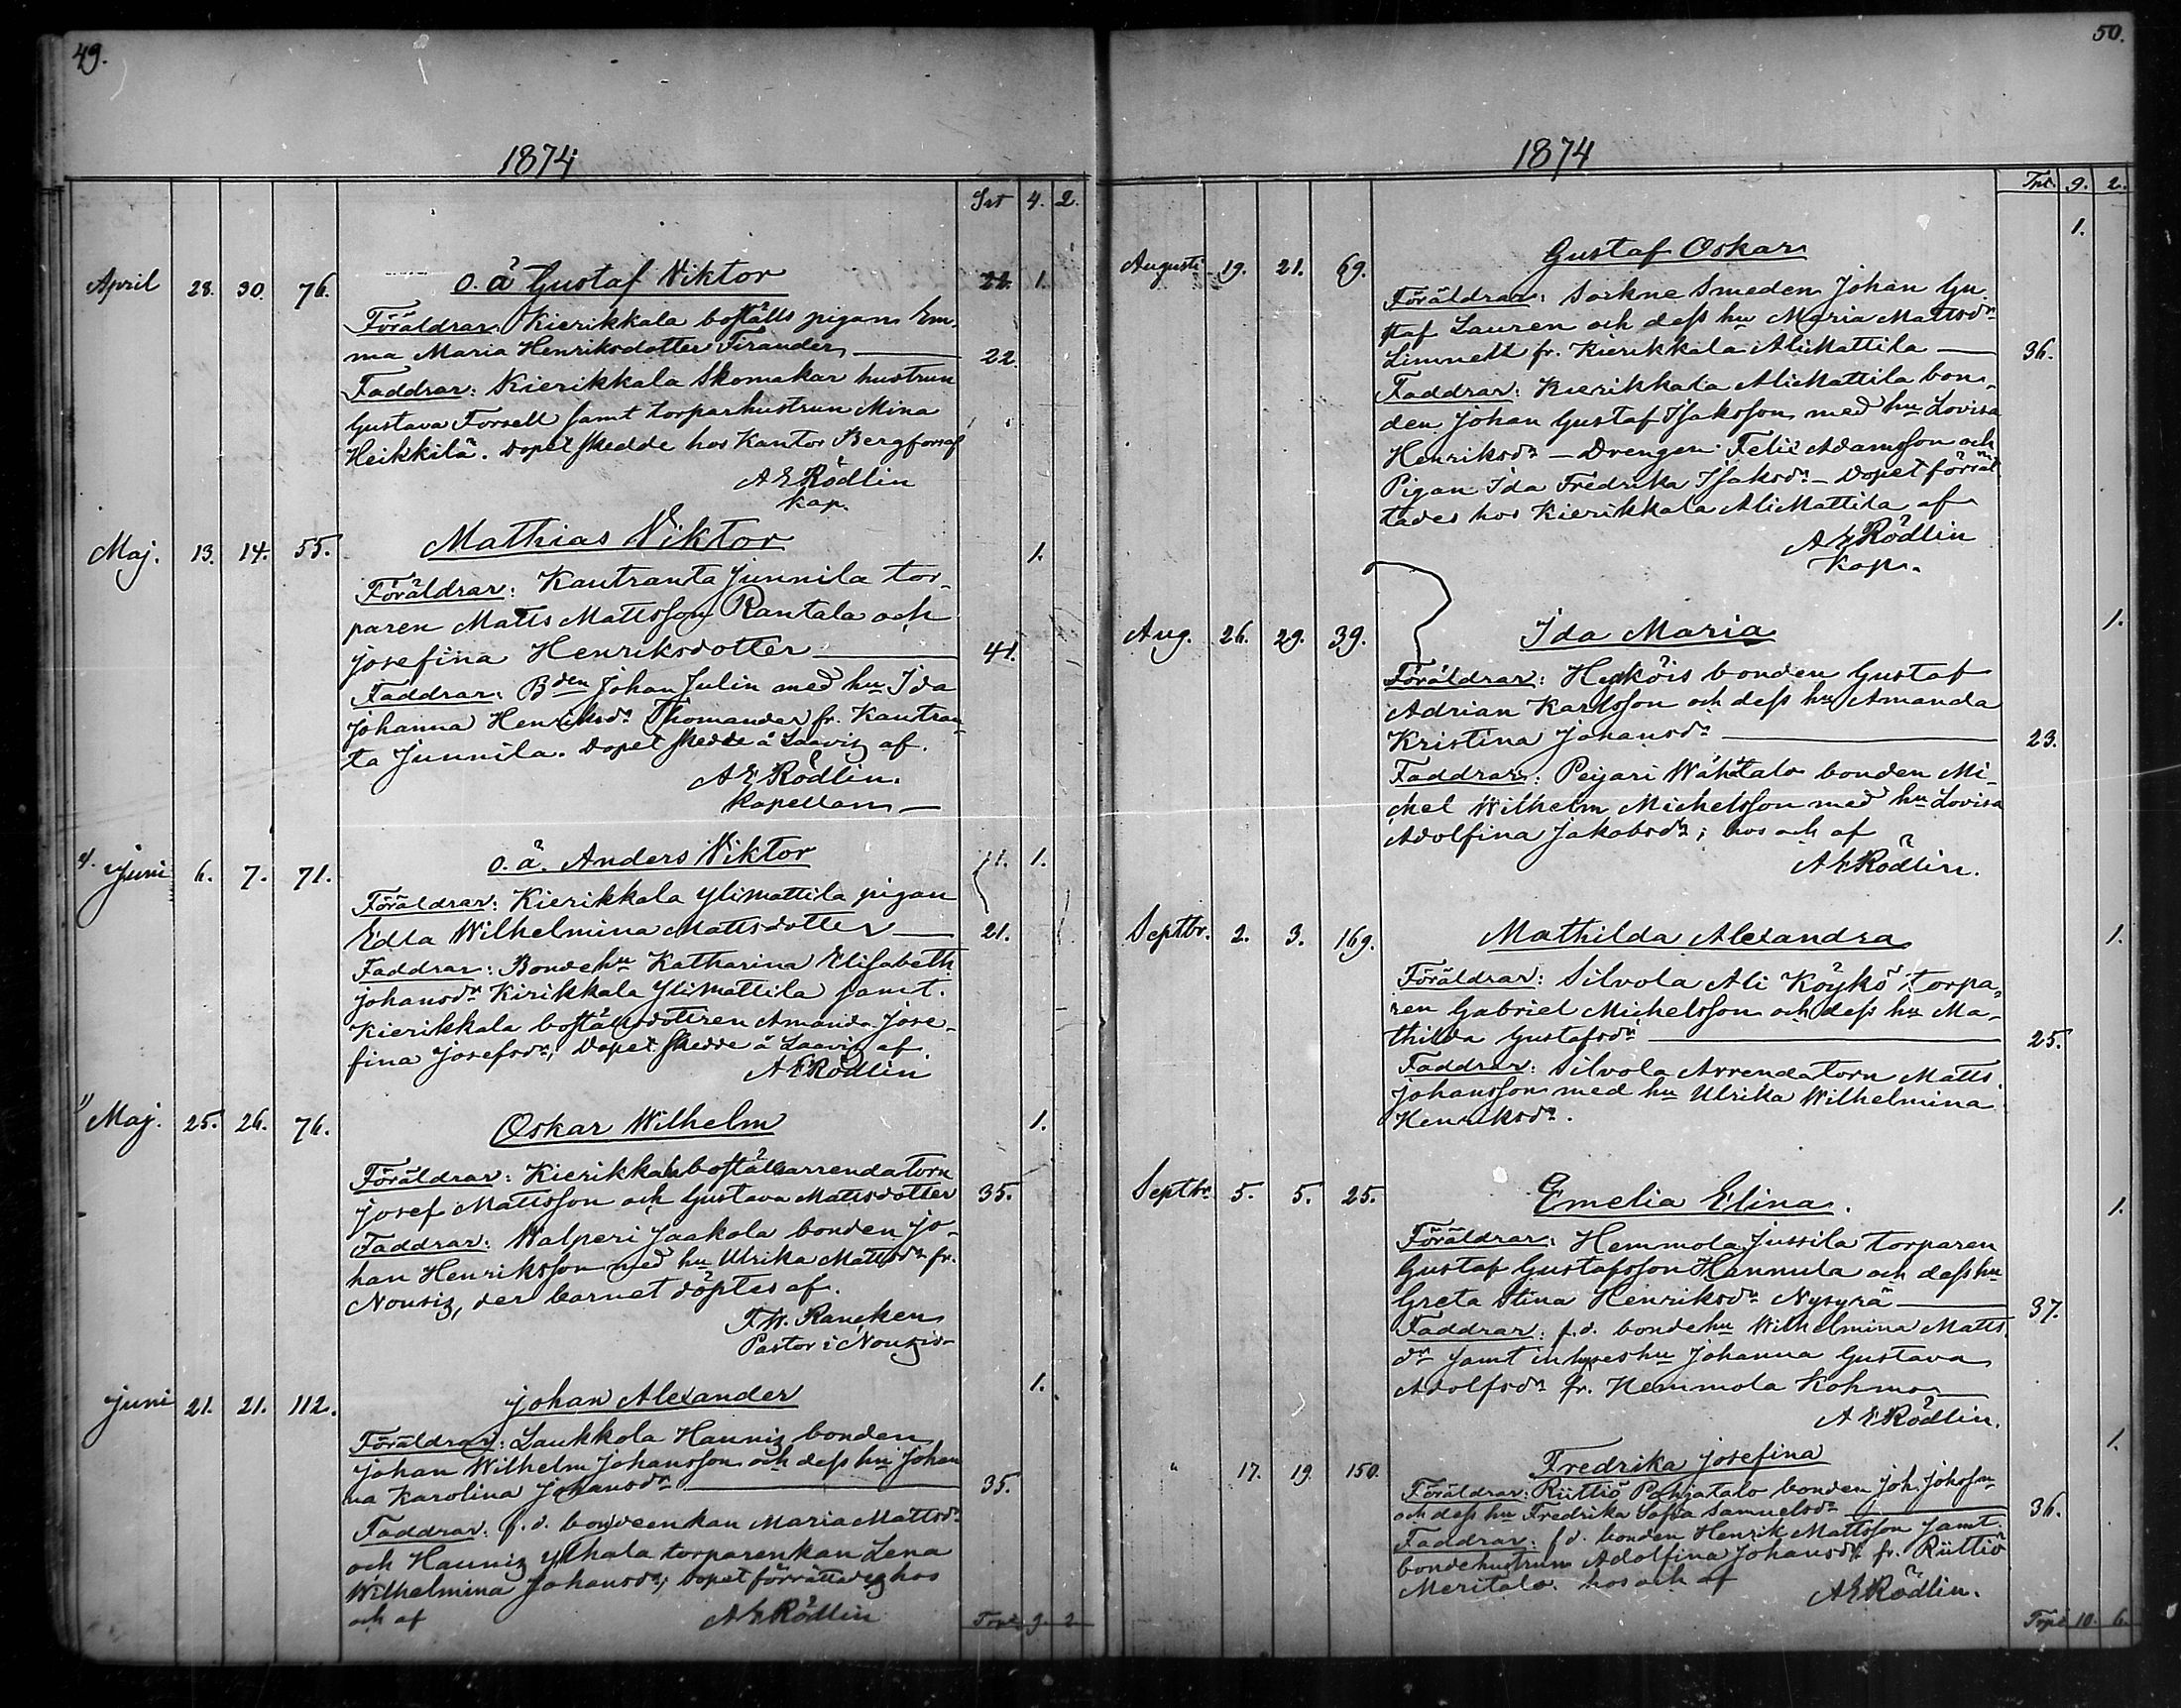 49.
1874
Trt 4. 2.
April 28. 30. 76. o. ä Gustaf Viktor 22. 1.
Föräldrar: Kierikkala boställs pigan Em-
ma Maria Henriksdotter Tirander — 22.
Faddrar: Kierikkala Skomakar hustrun
Gustava Forsell samt torparhustrun Mina
Heikkilä. Dopet skedde hos Kantor Bergfors af
A E Rödlin
Kap.
Maj. 13. 14. 55. Mathias Viktor 1.
Föräldrar: Kautranta Junnila tor-
paren Matts Mattsson Rantala och
Josefina Henriksdotter — 41.
Faddrar: Bden Johan Julin med hu Ida
Johanna Henriksdr Thomander fr. Kautran-
ta Junnila. Dopet skedde å Laaviz af.
A E Rödlin.
Kapellan —
Juni 6. 7. 71. o. ä. Anders Viktor 1.
Föräldrar: Kierikkala Ylimattila pigan
Edla Wilhelmina Mattsdotter — 21.
Faddrar: Bondehu Katharina Elisabeth
Johansdr Kirikkala Ylimattila samt.
Kierikkala boställsdottren Amanda Jose-
fina Josefsdr; Dopet skedde å Laaviz af.
A E Rödlin
" Maj. 25. 26. 76. Oskar Wilhelm 1.
Föräldrar: Kierikkala boställsarrendatorn
Josef Mattsson och Gustava Mattsdotter 35.
Faddrar: Walperi Jaakola bonden Jo-
han Henriksson med hu Ulrika Mattsdr fr.
Nousiz, der barnet döptes af.
F W. Rancken
Pastor i Nousis
Juni 21. 21. 112. Johan Alexander 1.
Föräldrar: Laukkola Hauniz bonden
Johan Wilhelm Johansson och dess hu Johan
na Karolina Johansdr — 35.
Faddrar: f. d. bondeenkan Maria Mattsdr
och Hauniz torparenkan Lena
Wilhelmina Johansdr; Dopet förrättades hos
och af A E Rödlin
9. 2
50.
1874
Trt. 9. 2.
Augusti 19. 21. 69. Gustaf Oskar 1.
Föräldrar: Sockne Smeden Johan Gu-
staf Lauren och dess hu Maria Mattsdr
Limnell fr. Kierikkala AliMattila — 36.
Faddrar: Kierikkala AliMattila bon-
den Johan Gustaf Isaksson med hu Lovisa
Henriksdr — Drengen Felix Adamsson och
Pigan Ida Fredrika Isaksdr — Dopet förrät-
tades hos Kierikkala AliMattila af
A E Rödlin
Kap.
Aug. 26. 29. 39. Ida Maria 1.
Föräldrar: Heyköis bonden Gustaf
Adrian Karlsson och dess hu Amanda
Kristina Johansdr — 23.
Faddrar: Peijari Wähätalo bonden Mi-
chel Wilhelm Michelsson med hu Lovisa
Adolfina Jakobsdr; hos och af
A E Rödlin.
Septbr. 2. 3. 169. Mathilda Alexandra 1.
Föräldrar: Silvola Ali Köykö torpa-
ren Gabriel Michelsson och dess hu Ma-
thilda Gustafsdr — 25.
Faddrar: Silvola Arrendatorn Matts
Johansson med hu Ulrika Wilhelmina
Henriksdr.
Septbr. 5. 5. 25. Emelia Elina. 1.
Föräldrar: Hemmola Jussila torparen
Gustaf Gustafsson Hannula och dess hu
Greta Stina Henriksdr Nysyrä — 37.
Faddrar: f. d. bondehu Wilhelmina Matts-
dr samt inhyseshu Johanna Gustava
Adolfsdr fr. Hemmola Kohmo —
A E Rödlin.
" 17. 19. 150. Fredrika Josefina 1.
Föräldrar: Riittiö Pohjatalo bonden Joh. Johsson
och dess hu Fredrika Sofia Samuelsdr — 36.
Faddrar: f d. bonden Henrik Mattsson samt
bondehustrun Adolfina Johansdr fr. Riittiö
Meritalo. hos och af A E Rödlin.
10. 6.